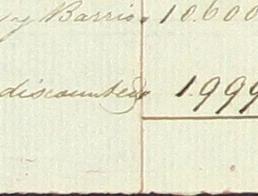 y Barrio. 10.600
discumbido 1.999